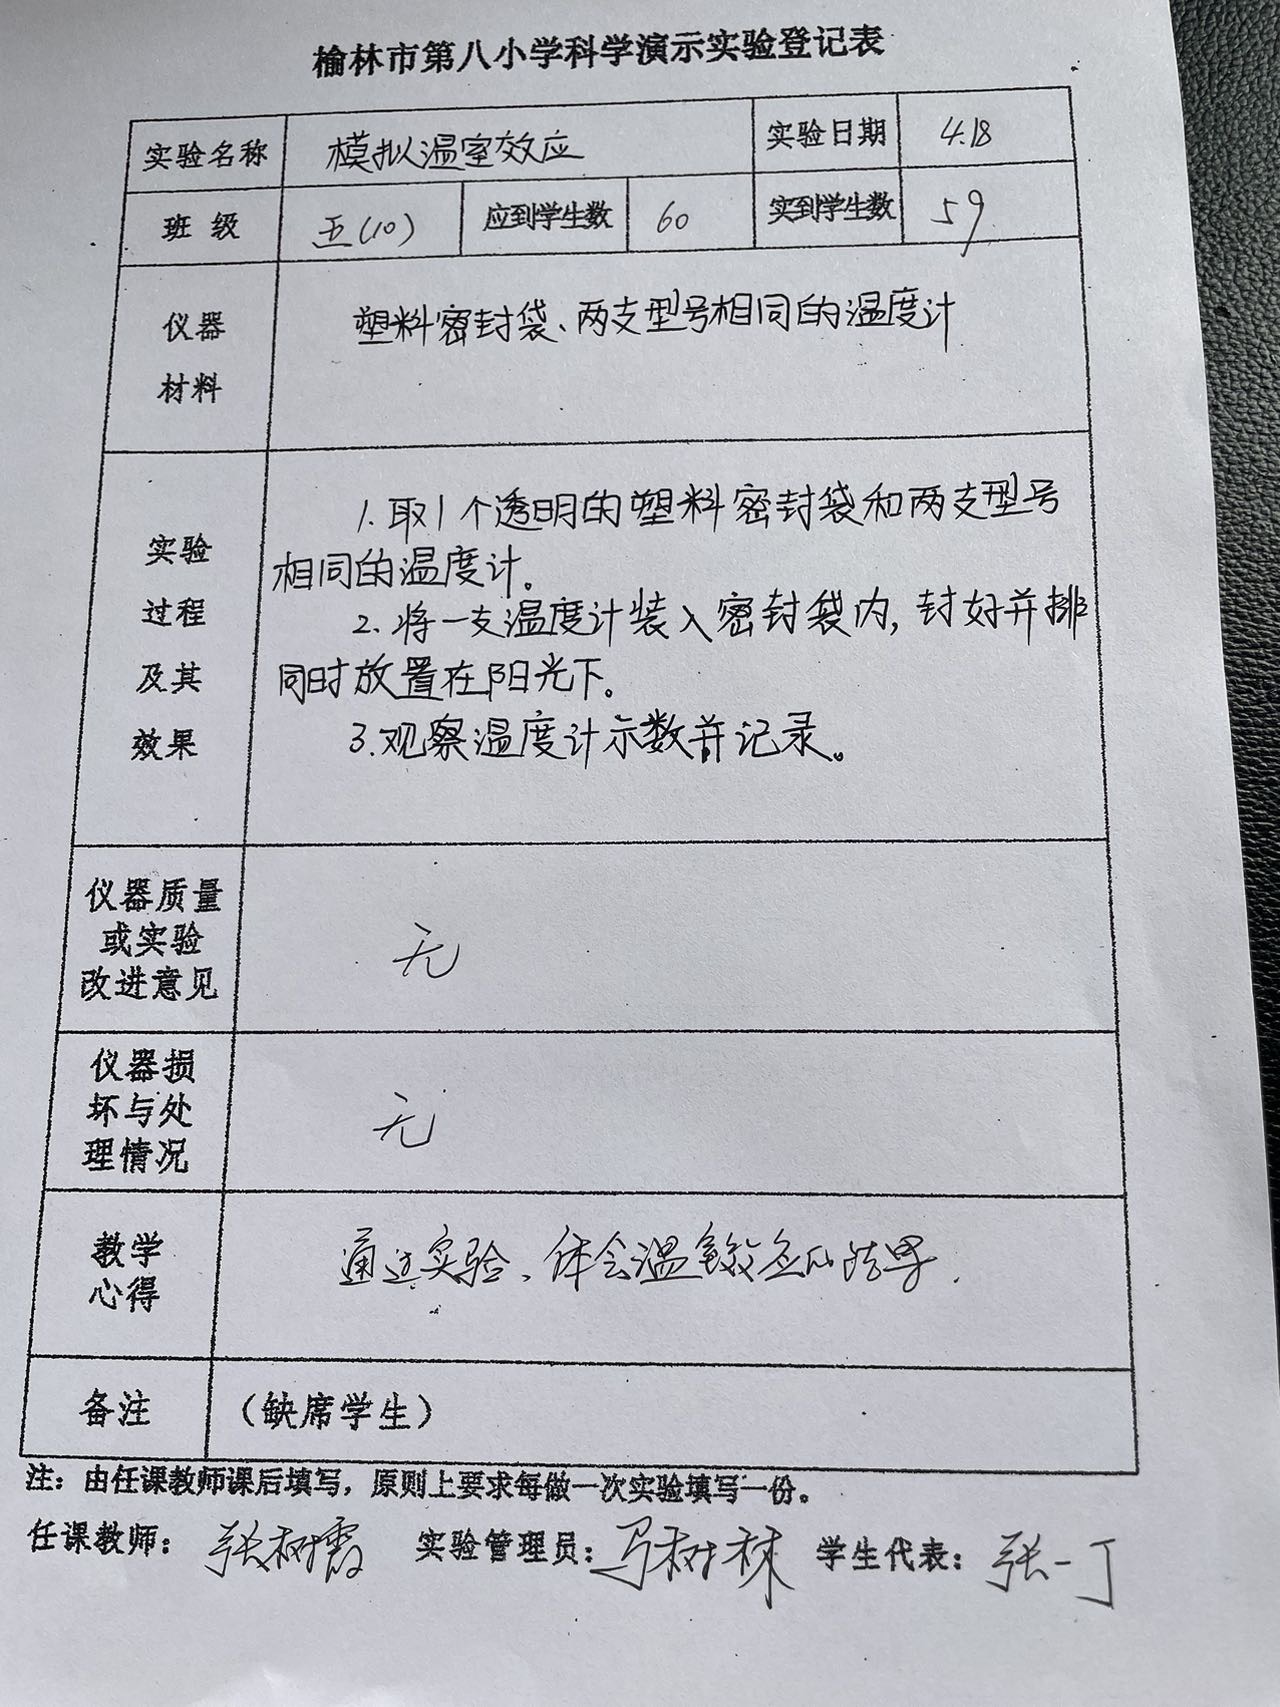 榆林市第八小学科学演示实验登记表
实验名称 模拟温室效应 实验日期 4.18
班 级 五(10) 应到学生数 60 实到学生数 59
仪器
材料
塑料密封袋、两支型号相同的温度计
实验
过程
及其
效果
1.取1个透明的塑料密封袋和两支型号
相同的温度计。
2.将一支温度计装入密封袋内,封好并排
同时放置在阳光下。
3.观察温度计示数并记录。
仪器质量
或实验
改进意见
无
仪器损
坏与处
理情况
无
教学
心得
通过实验、体会温室效应的结果.
备注 (缺席学生)
注：由任课教师课后填写，原则上要求每做一次实验填写一份。
任课教师：张树霞 实验管理员：马树林 学生代表：张一丁